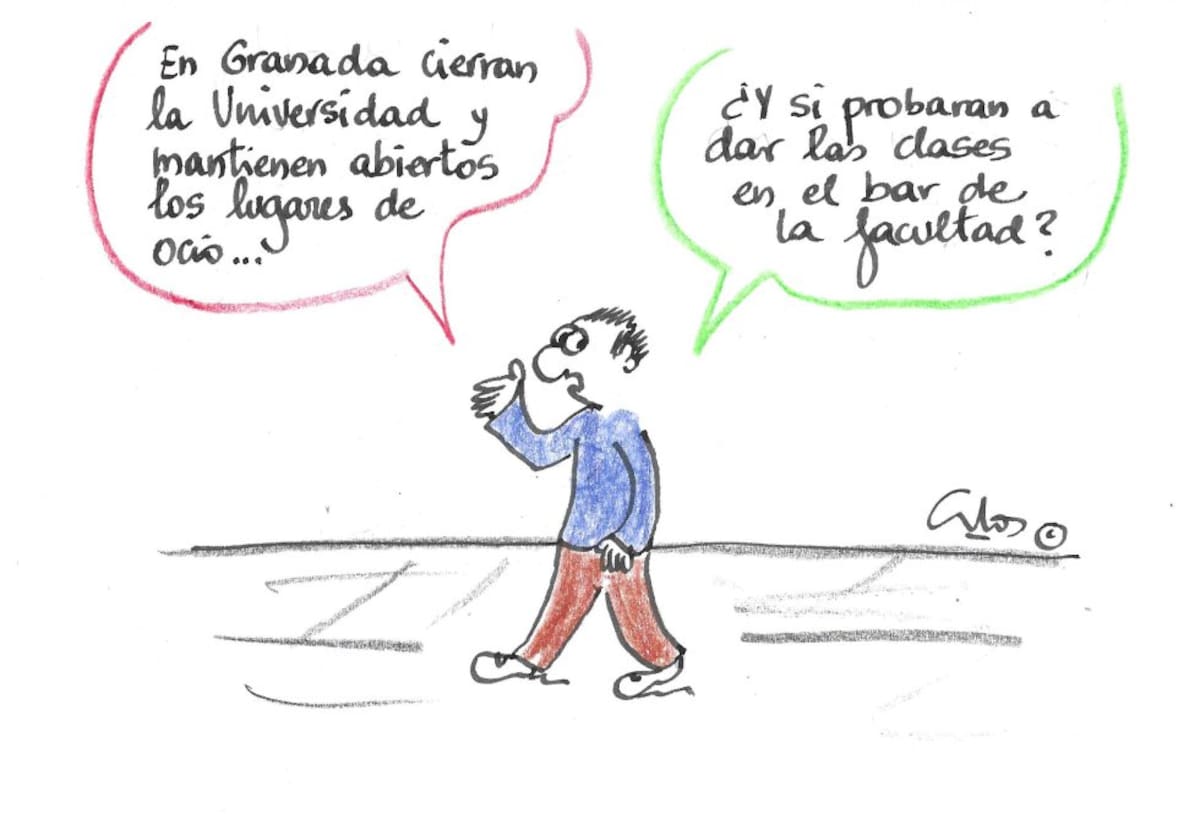 En Granada cierran
la Universidad y
mantienen abiertos
los lugares de
ocio...
¿Y si probaran a
dar las clases
en el bar de
la facultad?
©